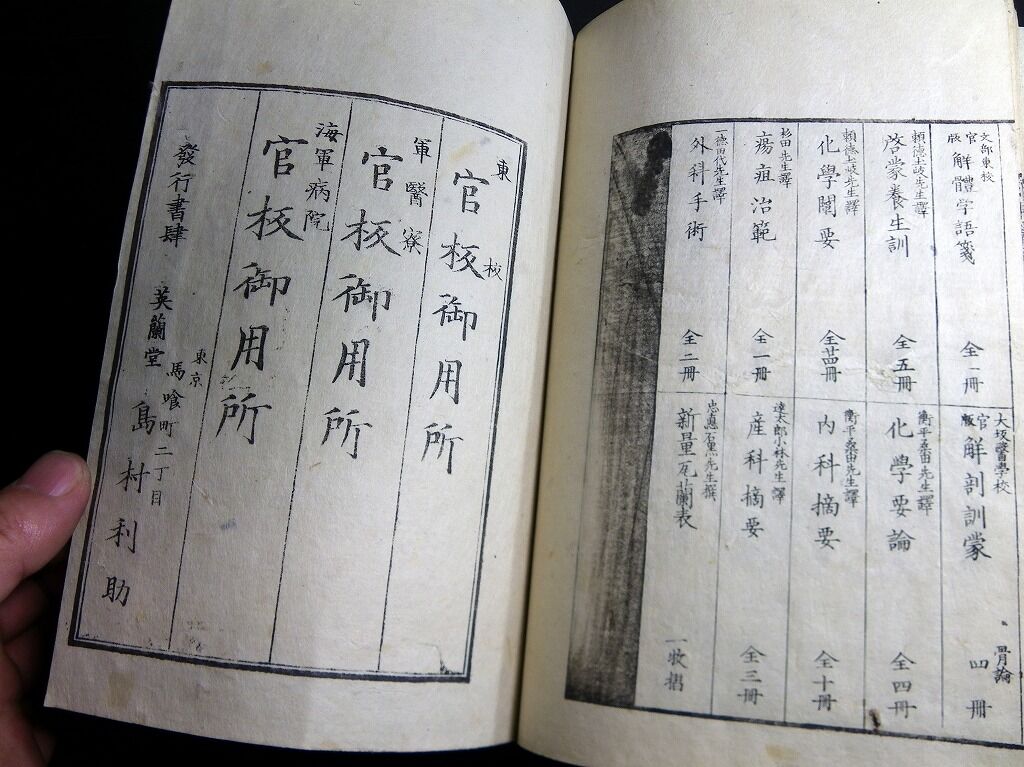 文部東校
官版 解體学語箋 全一冊
頼德土岐先生譯
啓蒙養生訓 全五冊
頼德土岐先生譯
化學闡要 全廿四冊
杉田先生譯
瘍疽治範 全一冊
一德田代先生譯
外科手術 全二冊
大坂醫學校
官版 解剖訓蒙 骨論 四冊
衡平桑田先生譯
化学要論 全四冊
衡平桑田先生譯
内科摘要 全十冊
達太郎小林先生譯
産科摘要 全三冊
忠悳石黒先生撰
新量瓦蘭表 一枚摺
東校
官校御用所
軍醫寮
官校御用所
海軍病院
官校御用所
東京馬喰町二丁目
發行書肆 英蘭堂 島村利助